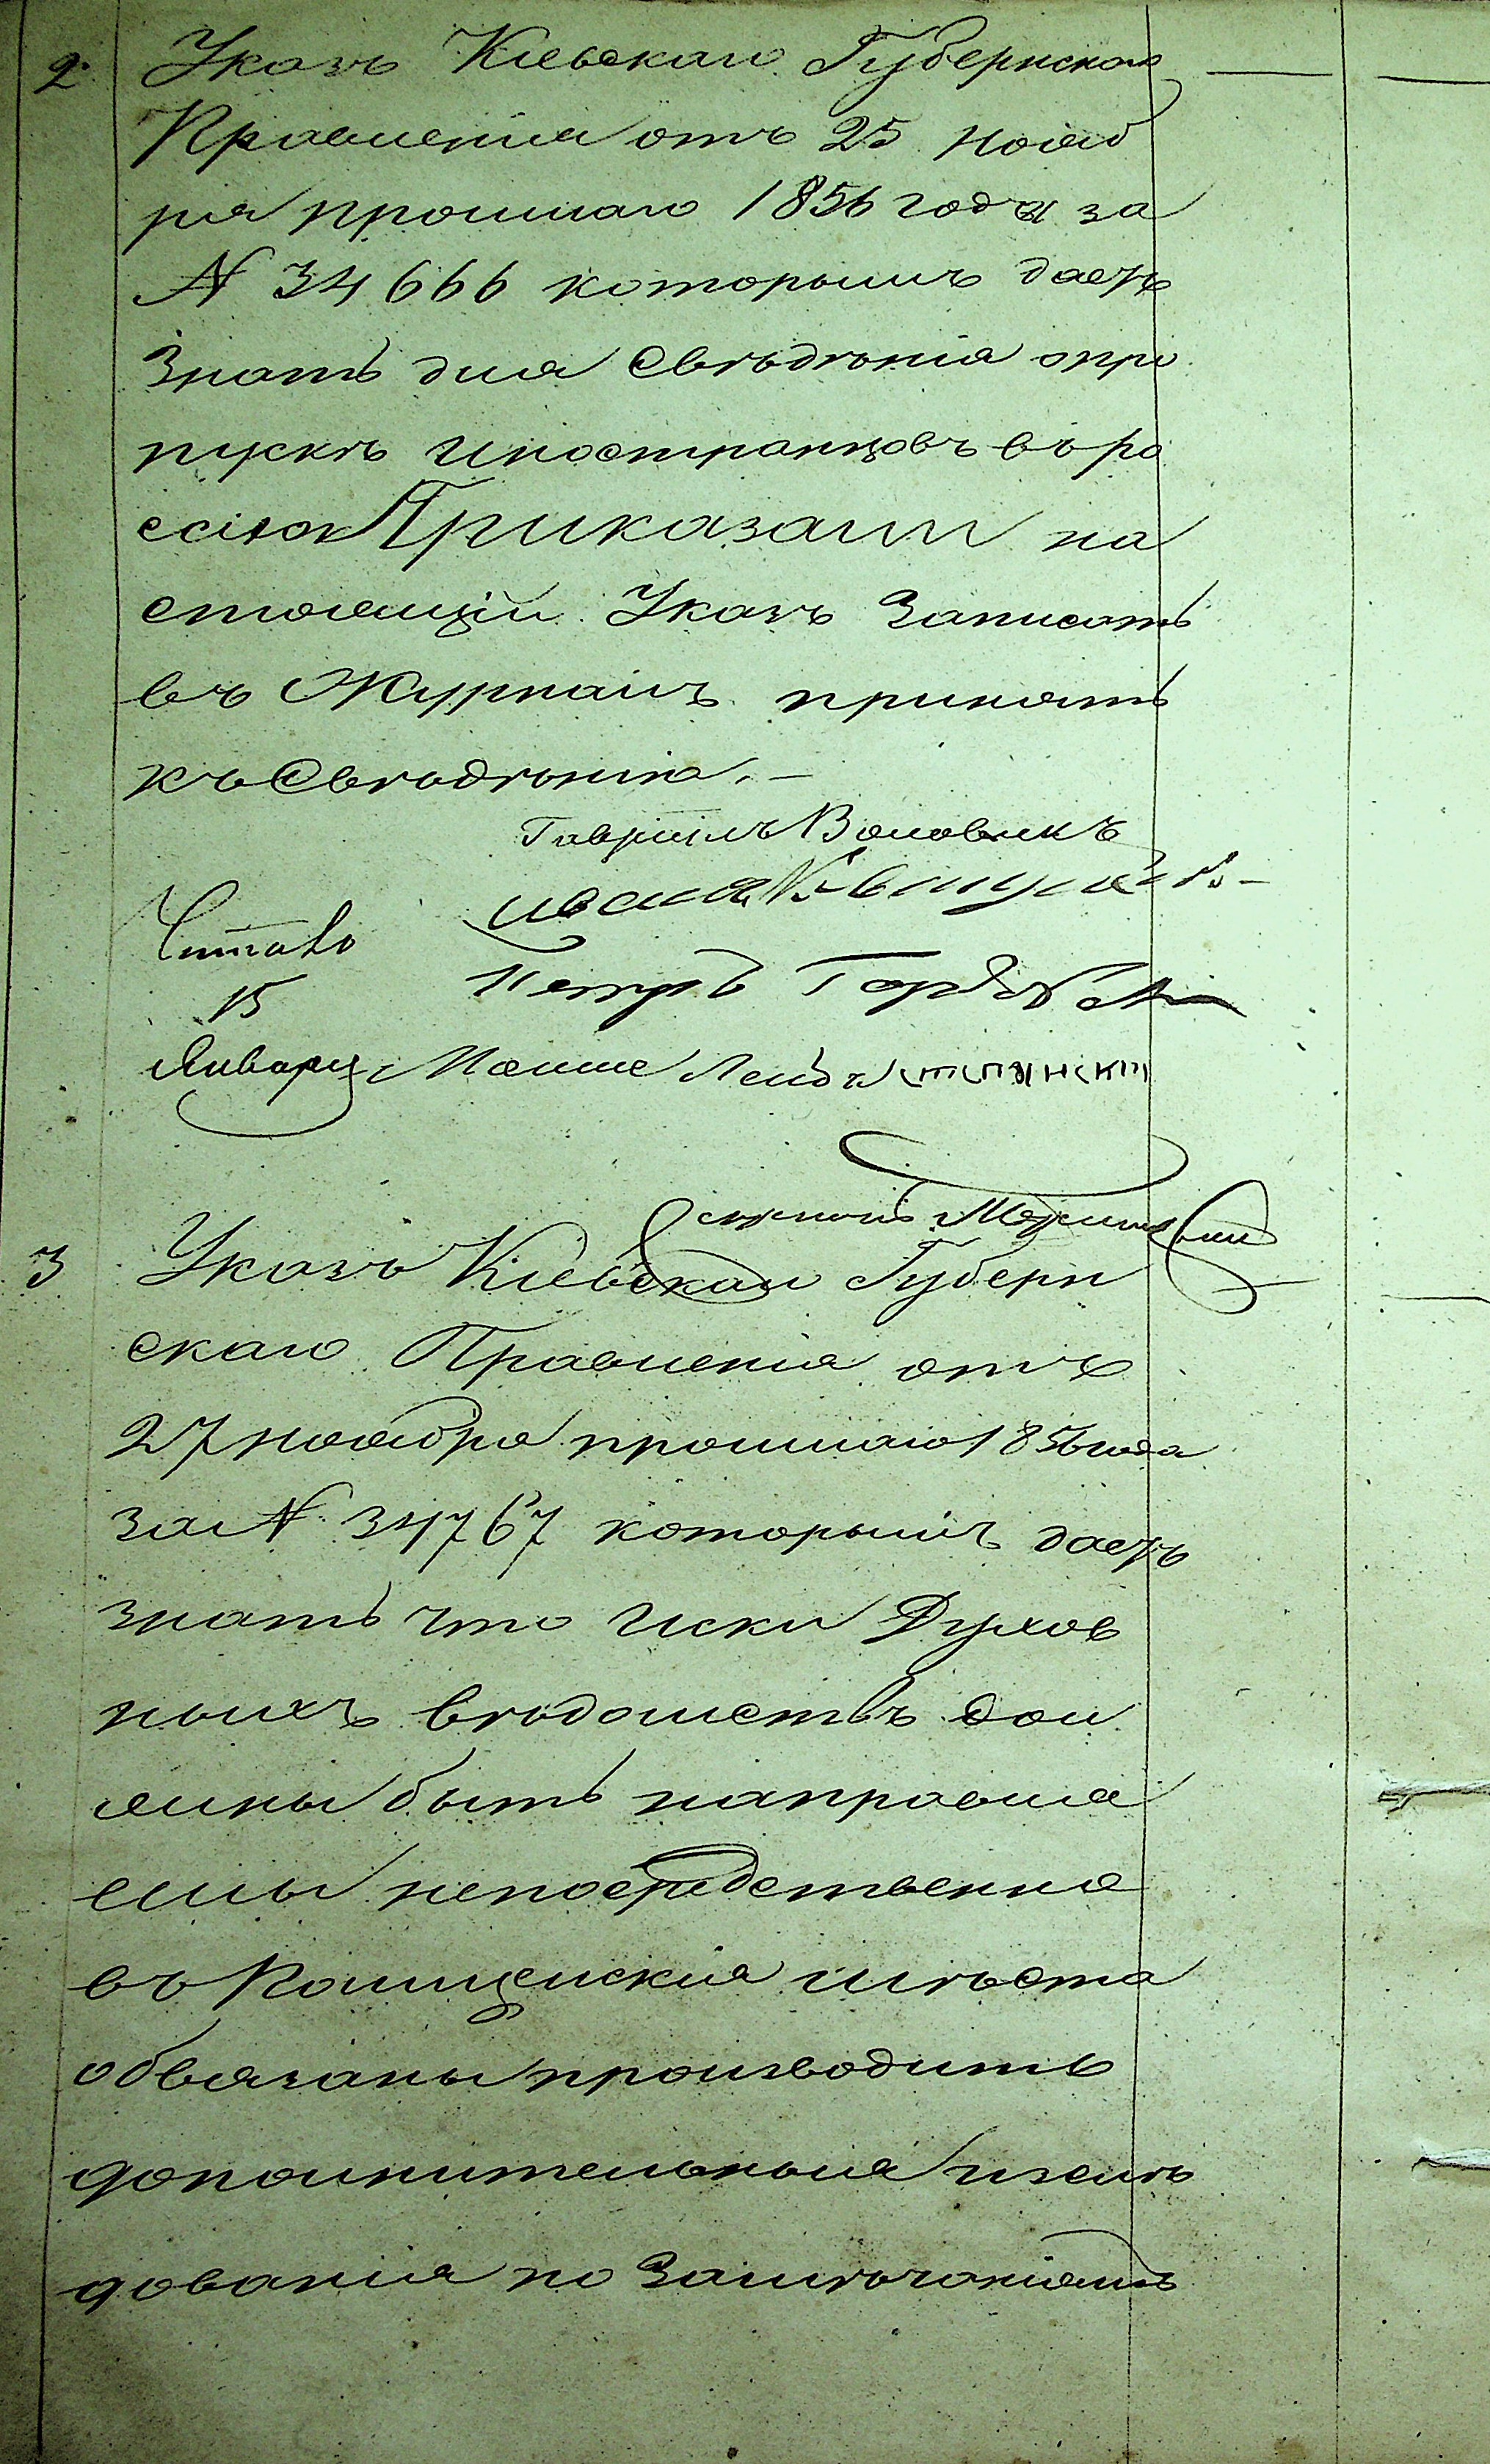 2. Указъ Кіевскаго Губернскаго
Правленія отъ 25 нояб
ря прошлаго 1856 года за
№ 34666 которымъ даетъ
знать для Свѣдѣнія опро
пускѣ иностранцовъ въ ро
ссію Приказали на
стоящій Указъ Записать
въ Журналъ принять
къ Свѣдѣнію. —
Гавріилъ Воловикъ
Читалъ
Петръ
15
Января Мошко Лейба
3 Указъ Кіевскаго Губерн
скаго Правленія отъ
27 ноября прошлаго 1856 года
за № 34767 которымъ даетъ
знать что иски Духов
ныхъ вѣдомствъ дол
жны быть направля
емы непосредственно
въ Полицейскія мѣста
обвязаны производить
дополнительныя изслѣ
дованія по Замѣчаніямъ